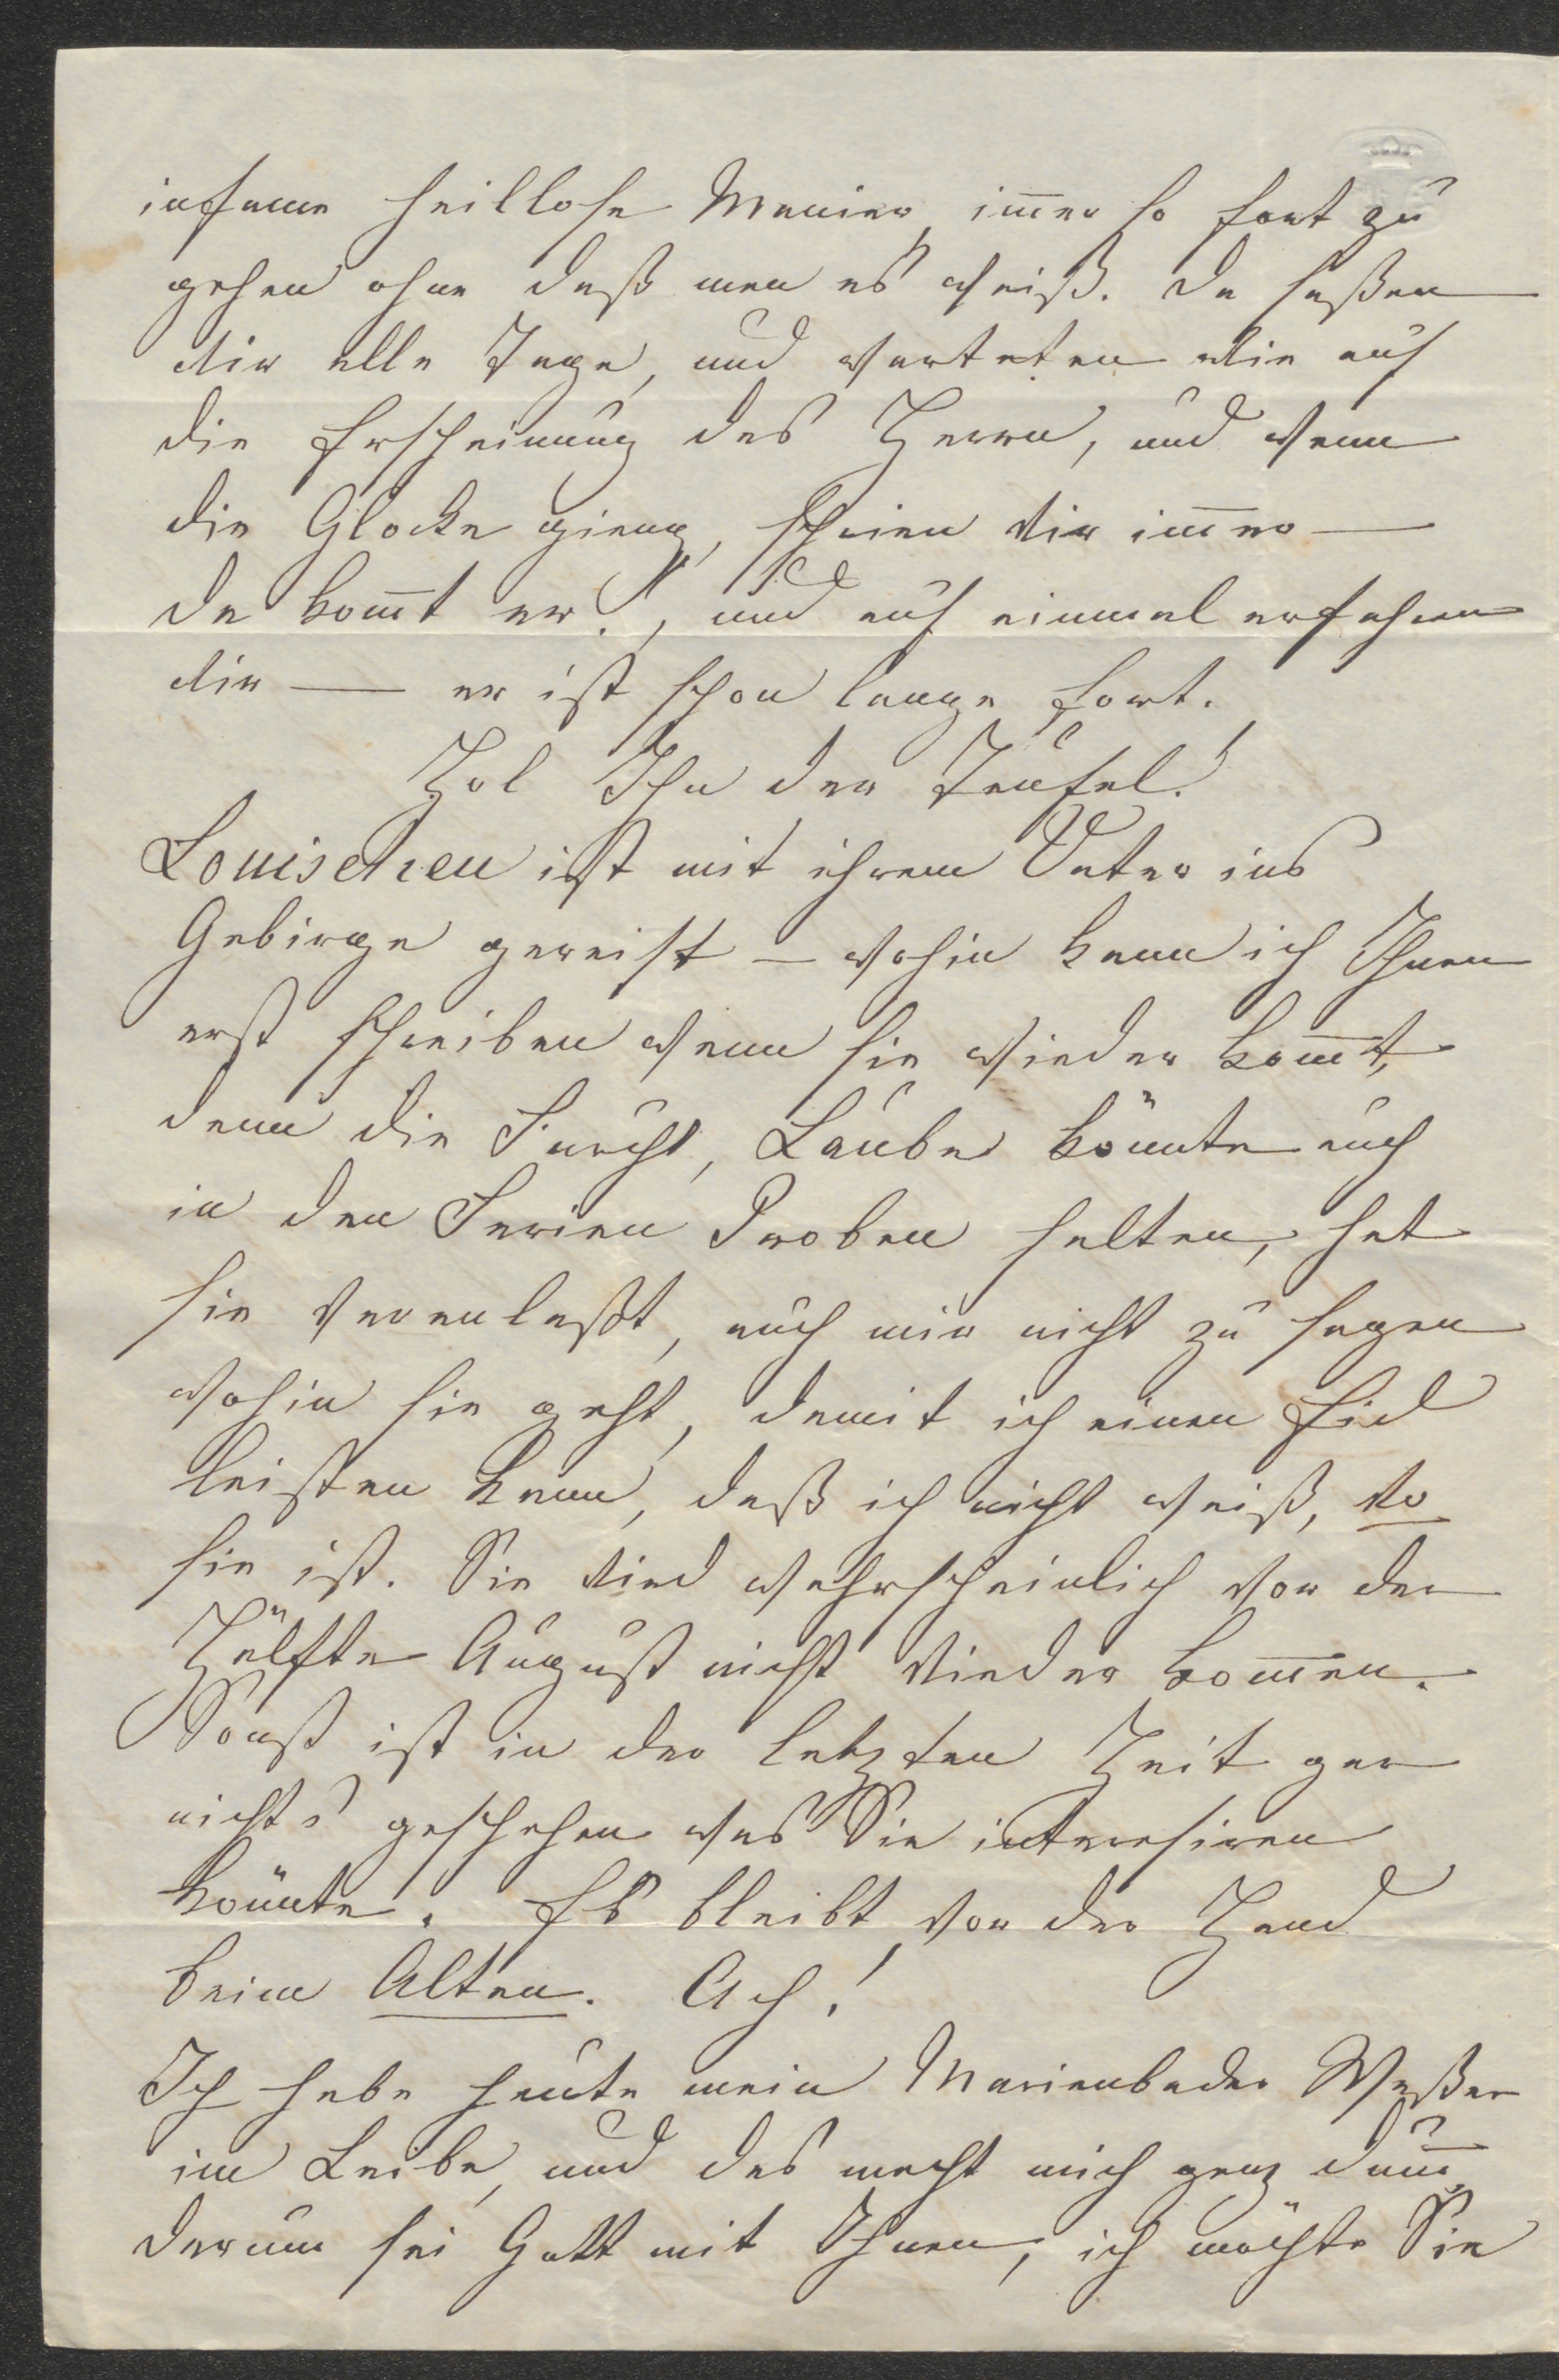 infame heillose Manier, im̅er so fort zu
gehen ohne daß man es weiß. Da saßen
wir alle Tage, und warteten wie auf
die Erscheinung des Herrn, und wenn
die Glocke gieng, schrien wir im̅er —
da kom̅t er!, und auf einmal erfahren
wir — er ist schon lange fort.
Hol Ihn der Teufel!
Louischen ist mit ihrem Vater ins
Gebirge gereist — wohin kann ich Ihnen
erst schreiben wenn sie wieder kom̅t,
denn die Furcht, Laube könnte auch
in den Ferien Proben halten, hat
sie veranlaßt, auch mir nicht zu sagen
wohin sie geht, damit ich einen Eid
leisten kann, daß ich nicht weiß, wo
sie ist. Sie wird wahrscheinlich vor der
Hälfte August nicht wieder kom̅en.
Sonst ist in der letzten Zeit gar
nichts geschehen was Sie interesiren
könnte. Es bleibt vor der Hand
beim Alten. Ach!
Ich habe heute mein Marienbader Waßer
im Leibe, und das macht mich ganz dum̅,
darum sei Gott mit Ihnen, ich möchte Sie